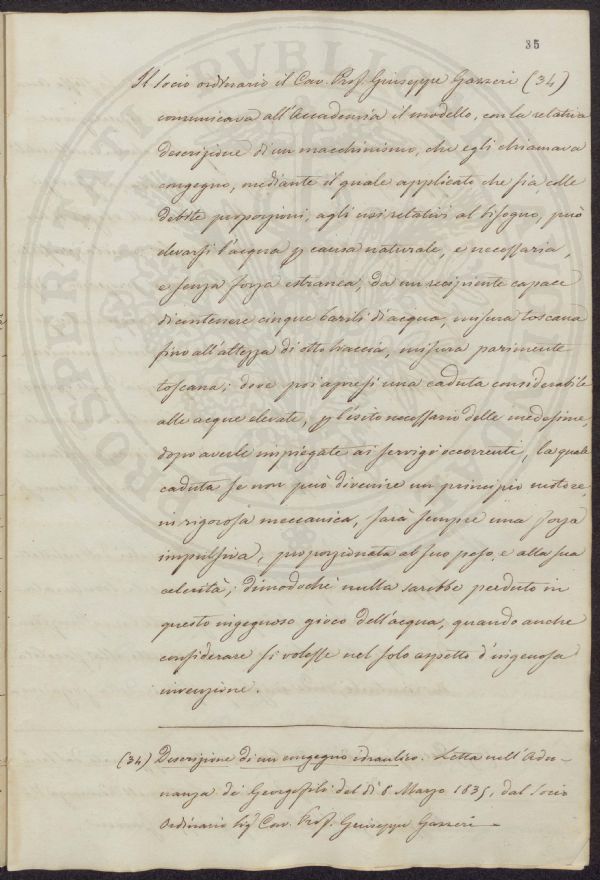 35
Il socio ordinario il Cav. Prof. Giuseppe Gazzeri (34)
comunicava all'Accademia il modello, con la relativa
descrizione di un macchinismo, che egli chiamava
congegno, mediante il quale applicato che sia, colle
debite proporzioni, agli usi relativi al bisogno, può
elevarsi l'acqua p causa naturale, e necessaria,
e senza forza estranea, da un recipiente capace
di contenere cinque barili d'acqua, misura toscana
fino all'altezza di otto braccia, misura parimente
toscana; dove poi apresi una caduta considerabile
alle acque elevate, p l'esito necessario delle medesime,
dopo averle impiegate ai servigi occorrenti, la quale
caduta se non può divenire un principio motore,
in rigorosa meccanica, sarà sempre una forza
impulsiva, proporzionata al suo peso, e alla sua
celerità; dimodochè nulla sarebbe perduto in
questo ingegnoso gioco dell'acqua, quando anche
considerare si volesse nel solo aspetto d'ingenosa
invenzione.
(34) Descrizione di un congegno idraulico. Letta nell'Adu-
nanza de' Georgofili del dì 8 Marzo 1835, dal Socio
Ordinario Sigr Cav. Prof. Giuseppe Gazzeri
PROSPERITATI PVBLICAE AVGENDAE